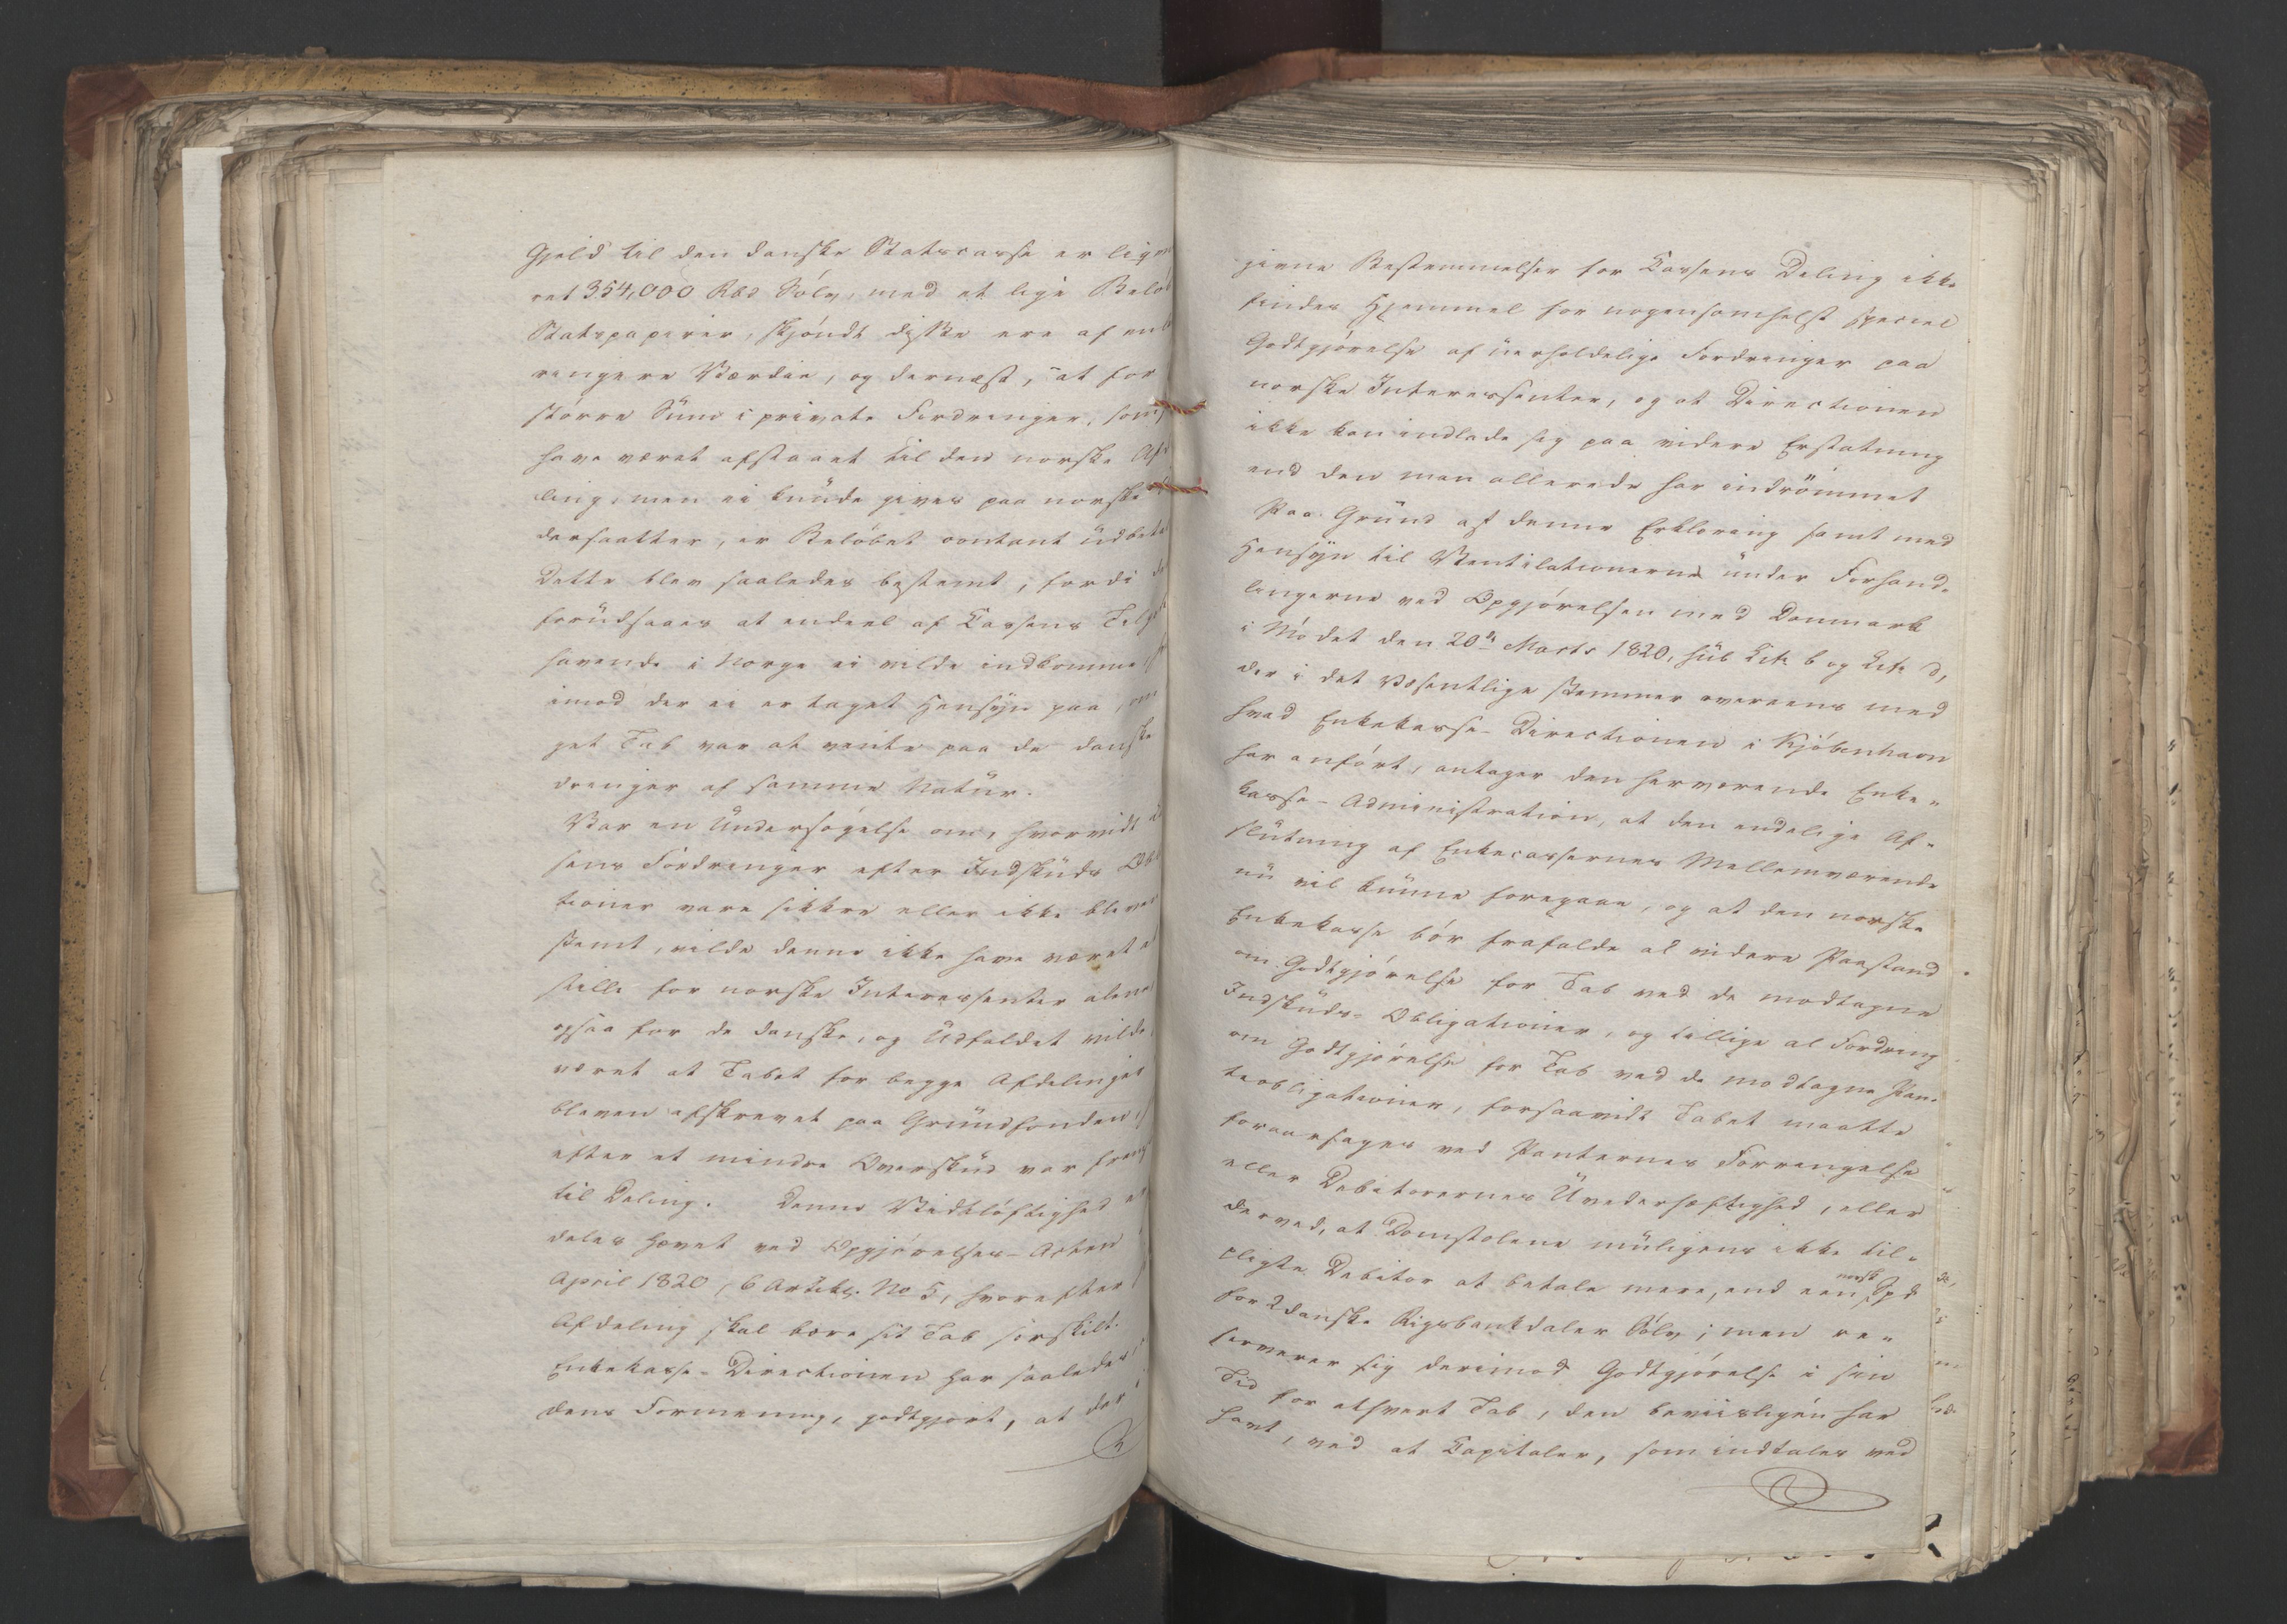 Gjeld til den danske Statscasse er lig
ret 354,000 Rbd Sölv, med et lige Belö
Statspapirer, skjöndt disse ere af
ringere Værdie, og dernæst, at for
större Sum i private Fordringer, som
have været afstaaet til den norske Af
ling, men ei kunde gives paa norske
dersaatter, er Belöbet contant udbet
Dette blev saaledes bestemt, fordi
forudsaaes at endeel af Cassens Tilg
havende i Norge ei vilde indkomme
imod der ei er taget Hensyn paa,
get Tab var at vente paa de danske
dringer af samme Natur.
Var en Undersögelse om, hvorvidt
sens Fordringer efter Indskuds Ob
tioner vare sikkre eller ikke bleven
stemt, vilde denne ikke have været
stille for norske Interessenter alene
ogsaa for de danske, og Udfaldet vilde
været at Tabet for begge Afdelinger
bleven afskrevet paa Grundfonden,
efter et mindre Overskud var
til Deling. Denne Vidtlöftighed er
deles hævet ved Opgjörelses-Acten
April 1820, 6 Artikl. No 5, hvorefter
Afdeling skal bære sit Tab særskilt.
Enkekasse-Directionen har saaledes,
dens Formening, godtgjort, at der i
givne Bestemmelser for Cassens Deling ikke
findes Hjemmel for nogensomhelst speciel
Godtgjörelse af uerholdelige Fordringer paa
norske Interessenter, og at Directionen
ikke kan indlade sig paa videre Erstatning
end den man allerede har indrömmet
Paa Grund af denne Erklæring samt med
Hensyn til Ventilationerne under Forhand-
lingerne ved Opgjörelsen med Danmark
i Mödet den 20de Marts 1820, sub Litr b og Litr d,
der i det Væsentlige stemmer overeens med
hvad Enkekasse-Directionen i Kjöbenhavn
har anfört, antager den herværende Enke-
kasse-Administration, at den endelige Af-
slutning af Enkecassernes Mellemværende
nu vil kunne foregaae, og at den norske
Enkekasse bör frafalde al videre Paastand
om Godtgjörelse for Tab ved de modtagne
Indskuds-Obligationer, og tillige al Fordring
om Godtgjörelse for Tab ved de modtagne Pan-
teobligationer, forsaavidt Tabet maatte
foraarsages ved Panternes Forringelse
eller Debitorernes Uvederhæftighed, eller
derved, at Domstolene muligens ikke til-
pligte Debitor at betale mere, end een norsk Spd
for 2 danske Rigsbankdaler Sölv; men re-
serverer sig derimod Godtgjörelse i sin
Tid for ethvert Tab, den beviisligen har
havt, ved at Capitaler, som indtales ved